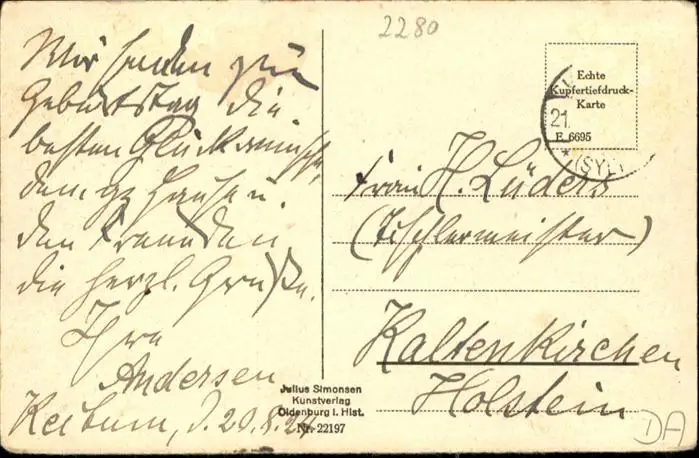 2280
Wir senden zum
Geburtstag die
besten Glückwünsche,
dem gz Hause u.
den Freunden
die herzl. Grüße.
Ihre
Andersen
Keitum, d. 20.8.24
Echte
Kupfertiefdruck-
Karte
E. 6695
21.
* (SYLT
Frau H. Lüders
(Tischlermeister)
Kaltenkirchen
Holstein
Julius Simonsen
Kunstverlag
Oldenburg i. Hlst.
Nr. 22197
DA